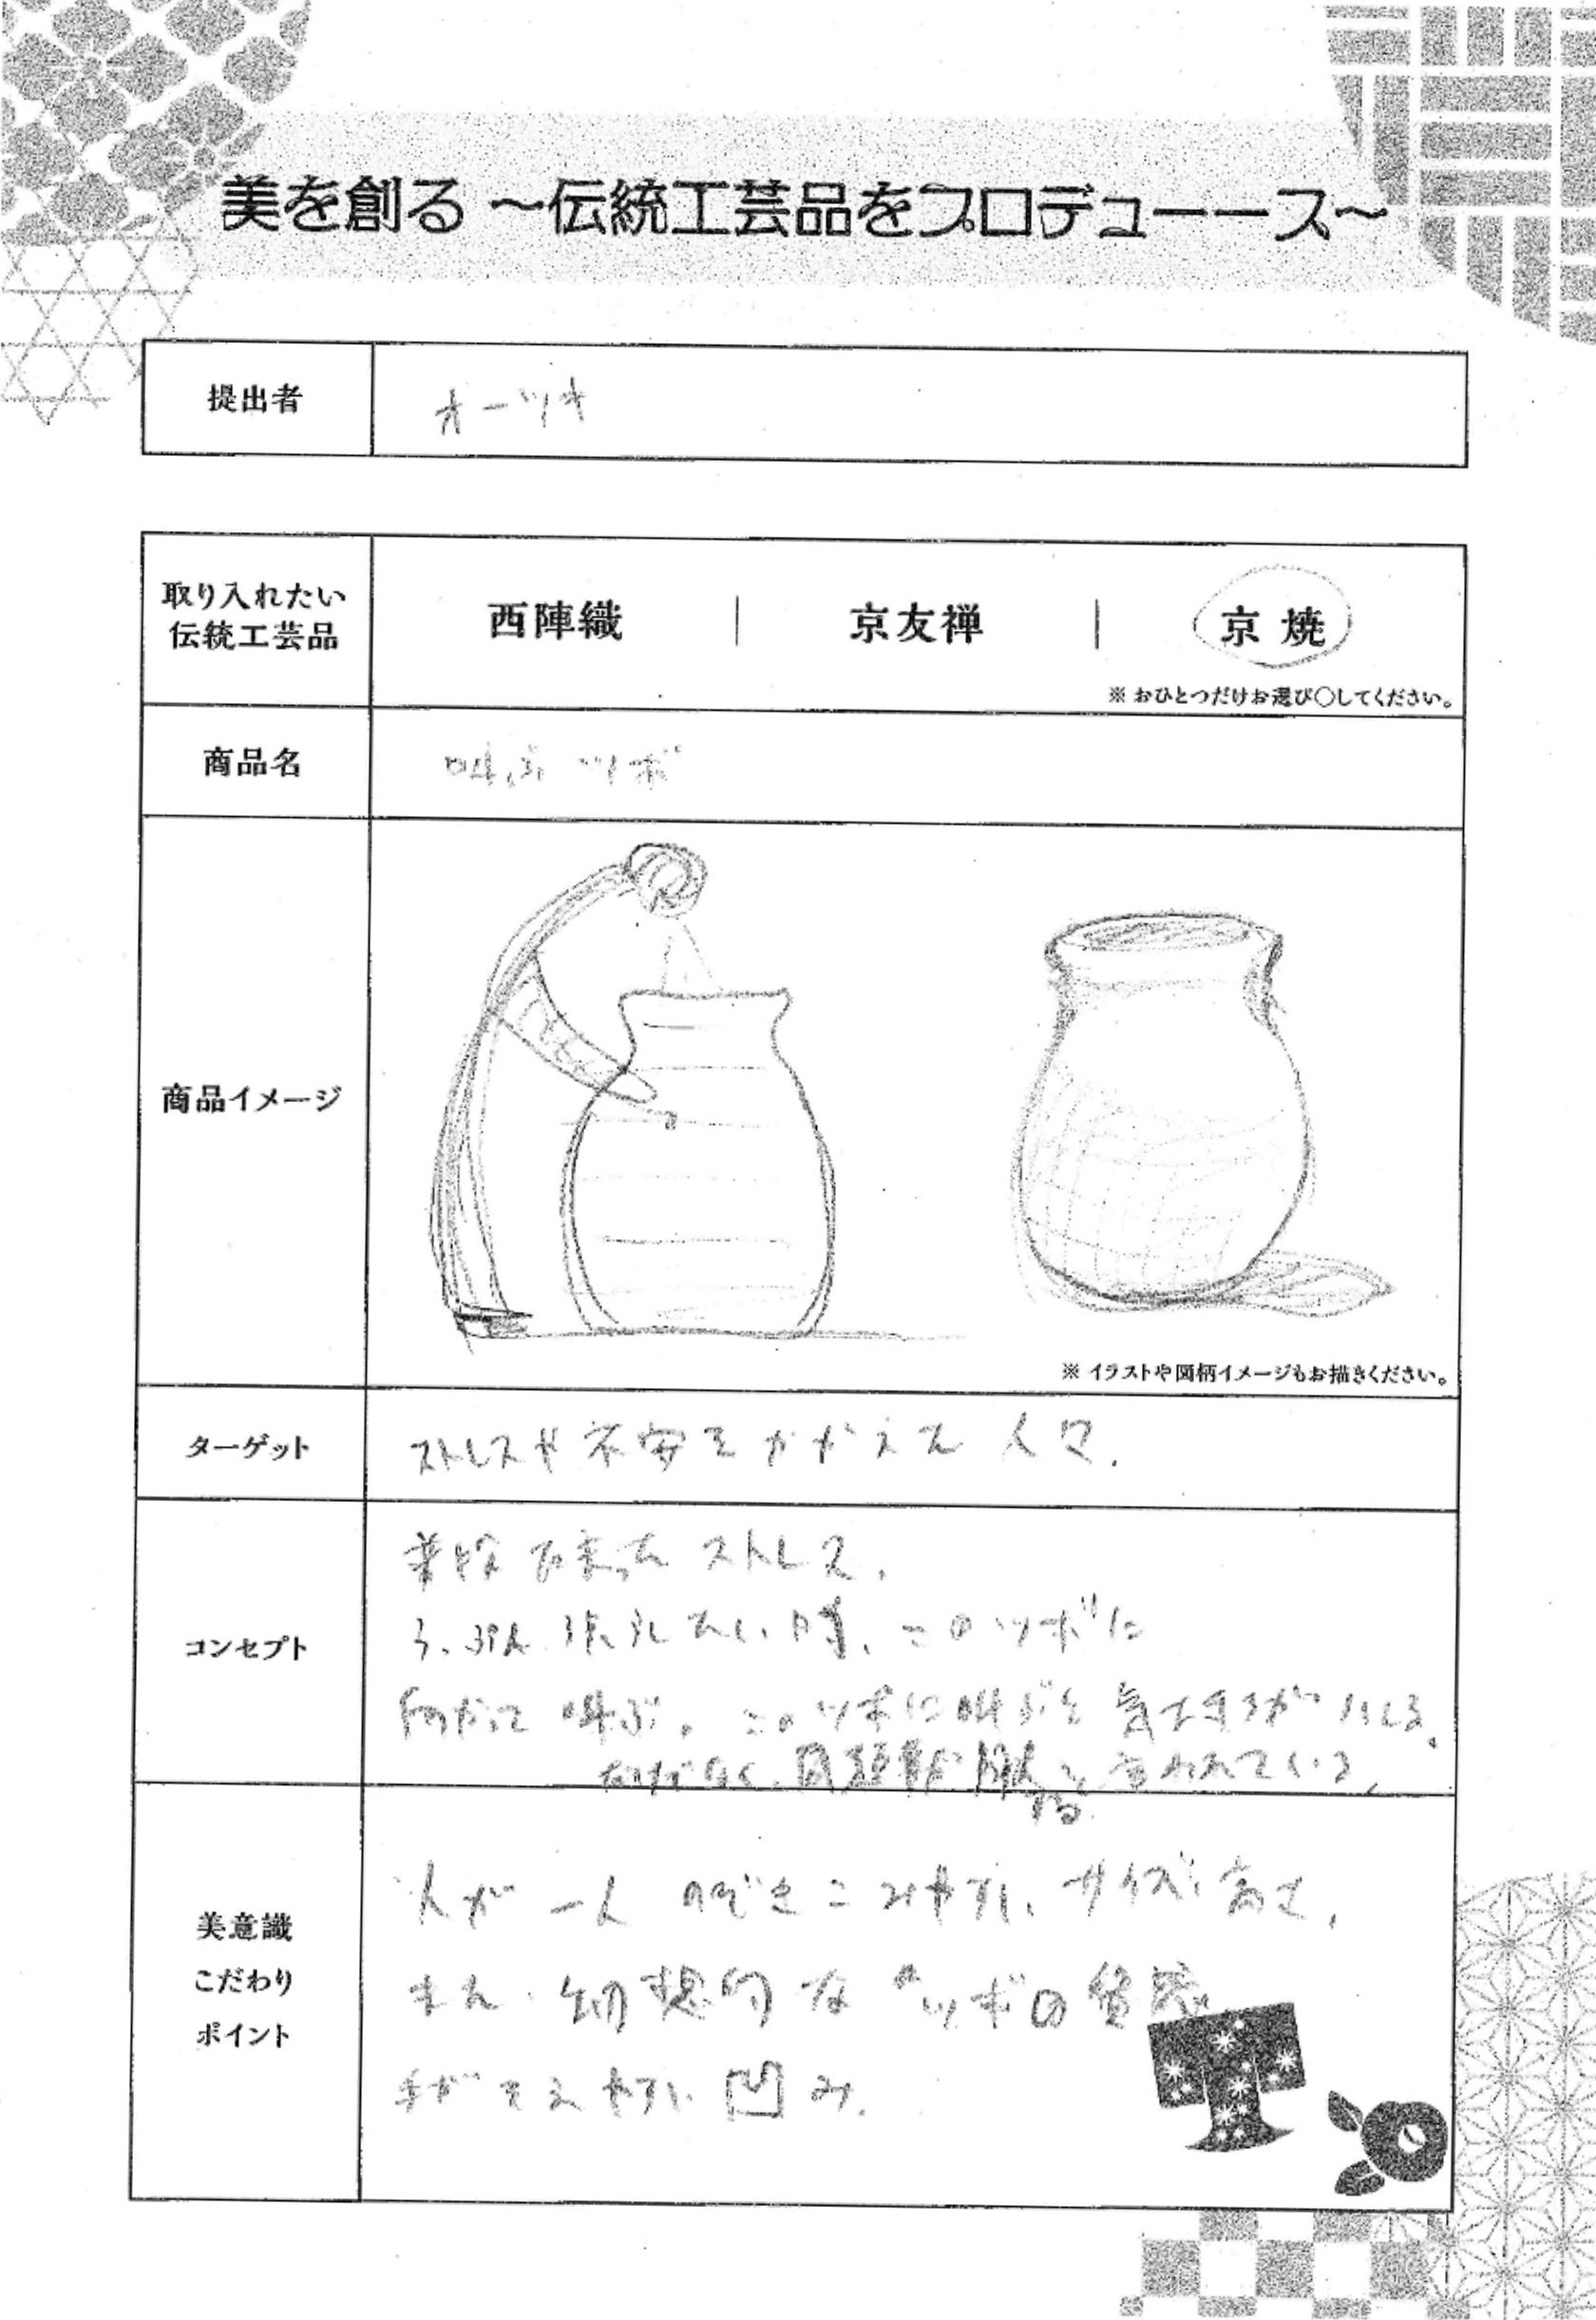 美を創る ～伝統工芸品をプロデューース～
提出者
オーツキ
取り入れたい
伝統工芸品
西陣織 | 京友禅 | 京 焼
※ おひとつだけお選び〇してください。
商品名
叫ぶ ツボ
商品イメージ
※ イラストや図柄イメージもお描きください。
ターゲット
ストレスや不安をかかえた人々.
コンセプト
ストレス.
うっぷん 晴らしたい時、このツボに
何だって 叫ぶ。このツボに叫ぶと 気大きるが
なぜなく、問題 と 言われている,
美意識
こだわり
ポイント
人が 一人 のぞきこみやすい、サイズ、高さ,
また 幻想的な ツボの質感
手がそえやすい 凹み.